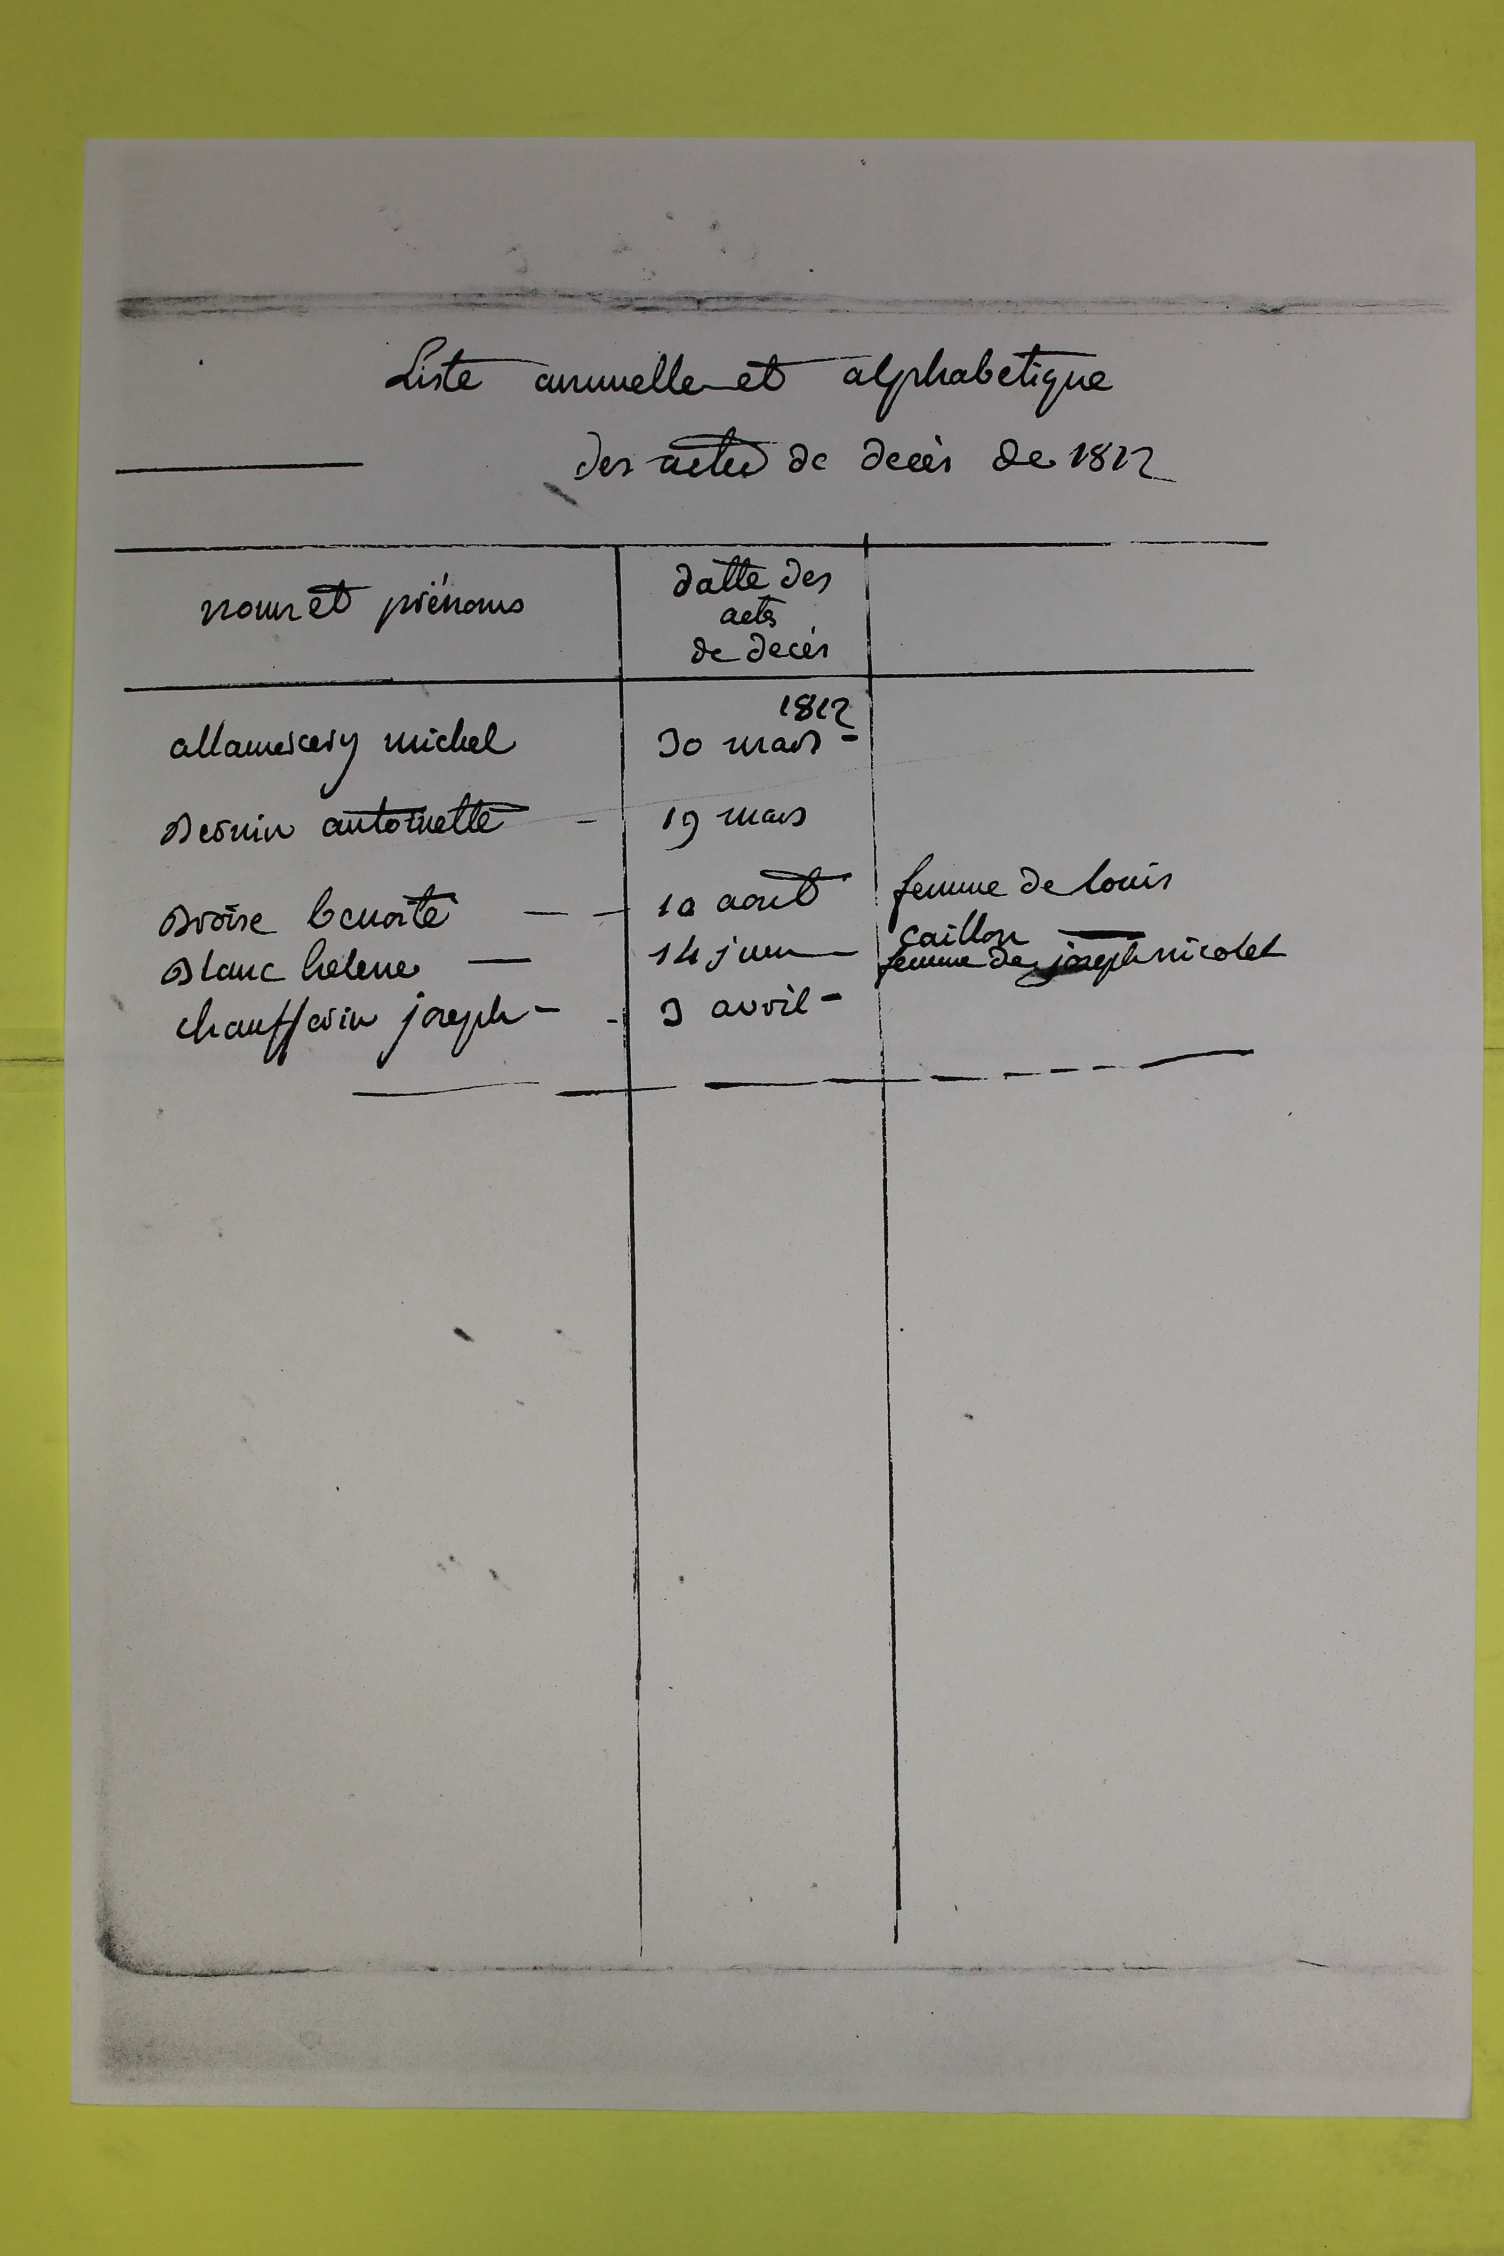 Liste annuelle et alphabetique
des actes de decès de 1812
noms et prénoms
datte des
actes
de decès
1812
allamercery michel 30 mars -
Bernin antoinette - 19 mars
Broise benoite - - 10 aout femme de louis
caillon
Blanc helene - 14 juin femme de joseph nicolet
chaufferin joseph - - 3 avril -